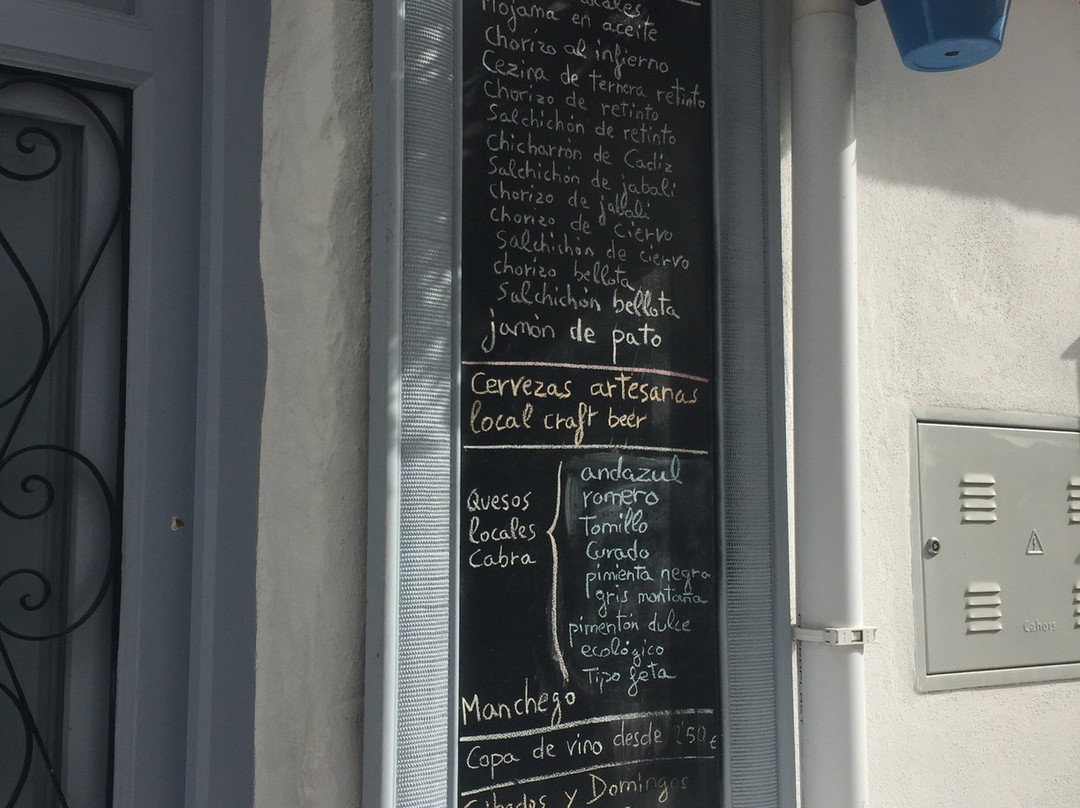 Mojama en aceite
Chorizo al infierno
Cezina de ternera retinto
Chorizo de retinto
Salchichón de retinto
Chicharrón de Cadiz
Salchichón de jabali
chorizo de jabali
chorizo de ciervo
Salchichón de ciervo
chorizo bellota
Salchichón bellota
jamón de pato
Cervezas artesanas
local craft beer
Quesos
locales
Cabra
andazul
romero
Tomillo
Curado
pimienta negra
gris montaña
pimentón dulce
ecológico
Tipo feta
Manchego
Copa de vino desde 2'50 €
Sábados y Domingos
Cahors